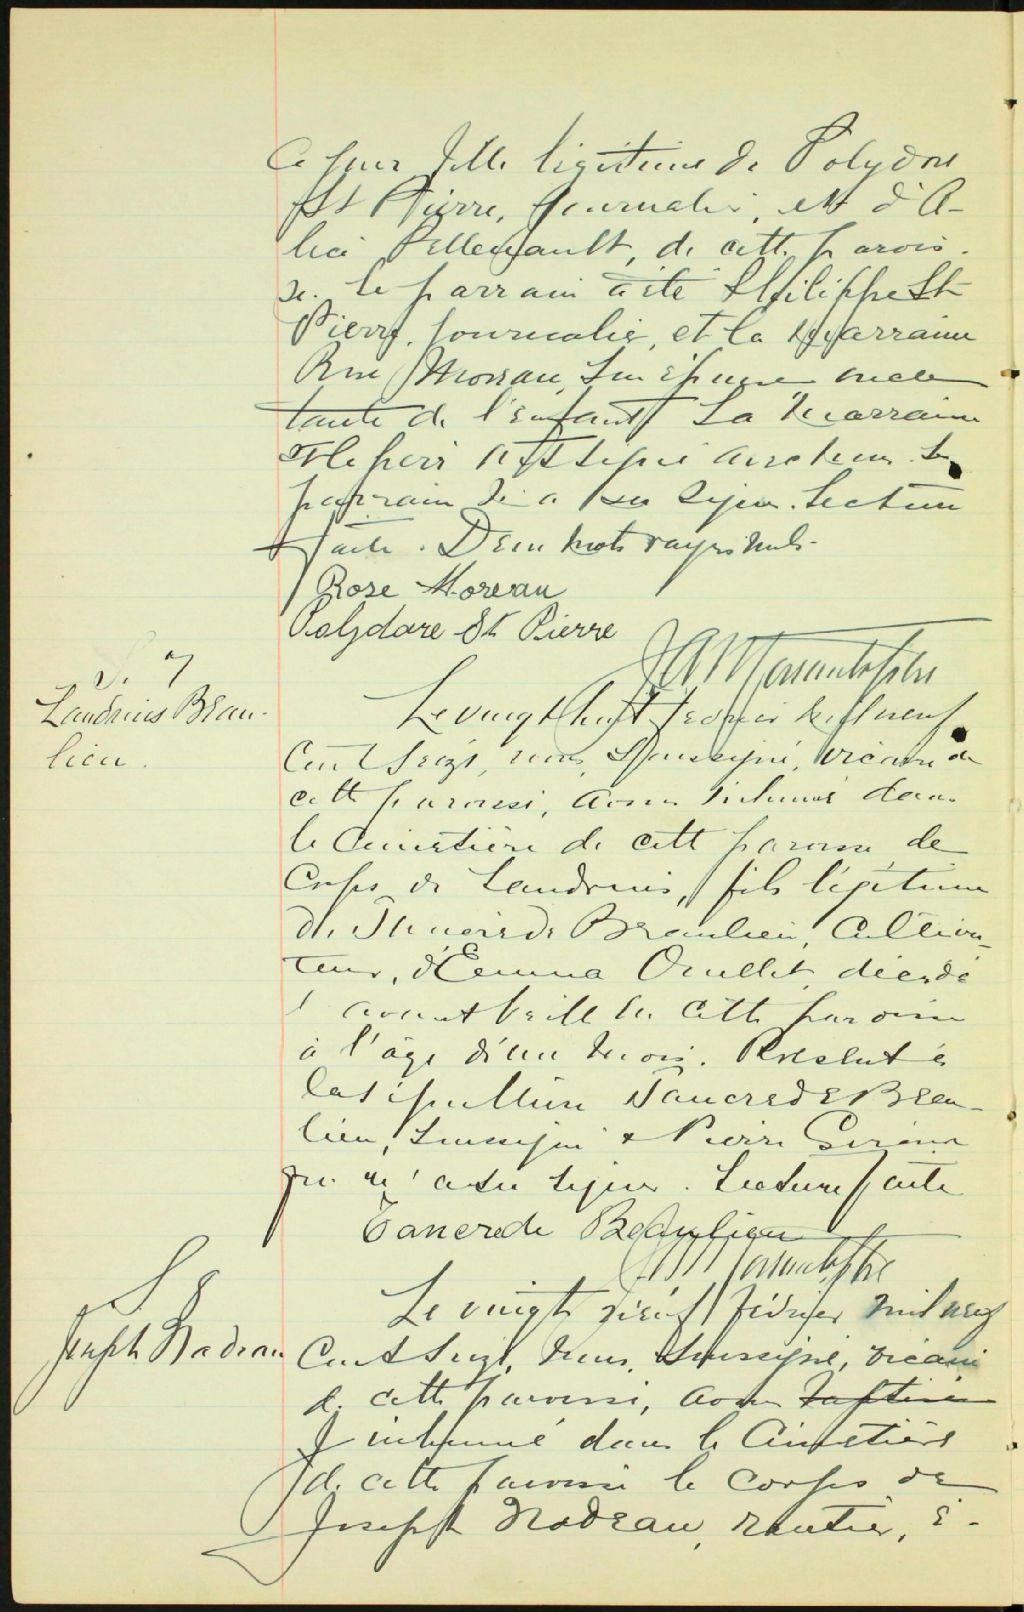 ce jour fille légitime de Polydore
St Pierre, journalier, et d'A-
lice Pellerault, de cette parois-
se. Le parrain a été Philippe St
Pierre, journalier, et la marraine
Rose Moreau, son épouse oncle
tante de l'enfant La marraine
et le père ont signé avec nous. Le
parrain n'a su signer. Lecture
faite. Deux mots rayés nuls.
Rose Moreau
Polydore St Pierre
S. 7
Landrius Beau-
lieu.
Le vingt huit février mil neuf
cent seize, nous, soussigné, vicaire de
cette paroisse, avons inhumé dans
le cimetière de cette paroisse le
corps de Landrius, fils légitime
de Tancrède Beaulieu, cultiva-
teur, d'Emma Ouellet, décédé
avant veille en cette paroisse
à l'âge d'un mois. Présent à
la sépulture Tancrède Beau-
lieu, soussigné & Pierre
qui n'a su signer. Lecture faite
Tancrede Beaulieu
S. 8
Joseph Nadeau
Le vingt neuf février mil neuf
cent seize, nous, soussigné, vicaire
de cette paroisse, avons baptisé
inhumé dans le cimetière
de cette paroisse le corps de
Joseph Nadeau, rentier, é-